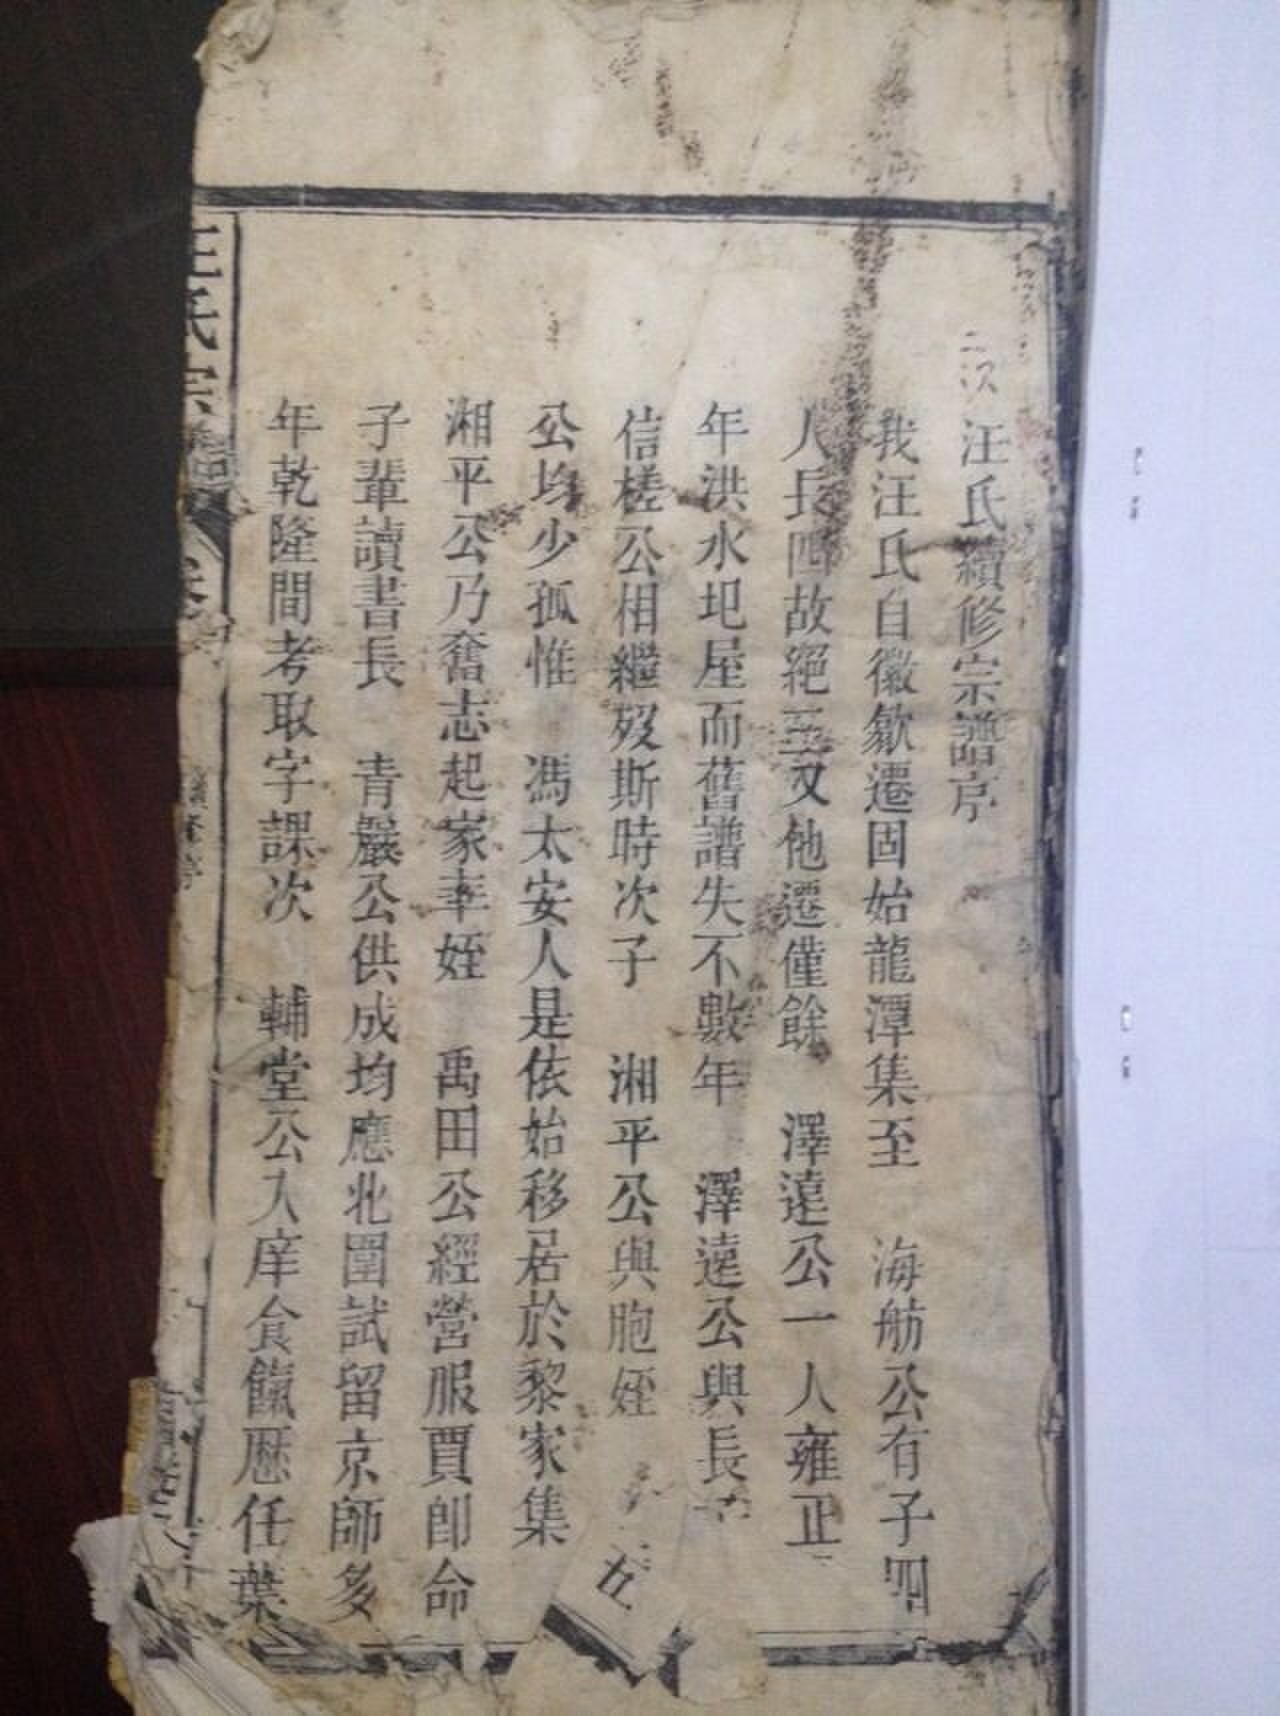 二次
汪氏續修宗譜序
我汪氏自徽歙遷固始龍潭集至 海舫公有子四
人長四故絕三又他遷僅餘 澤遠公一人雍正
年洪水圯屋而舊譜失不數年 澤遠公與長
信槎公相繼歿斯時次子 湘平公與胞姪
公均少孤惟 馮太安人是依始移居於黎家集
湘平公乃奮志起家率姪 禹田公經營服賈即命
子輩讀書長 青嚴公供成均應北圍試留京師多
年乾隆間考取字課次 輔堂公入庠食餼歷任葉
汪氏宗譜